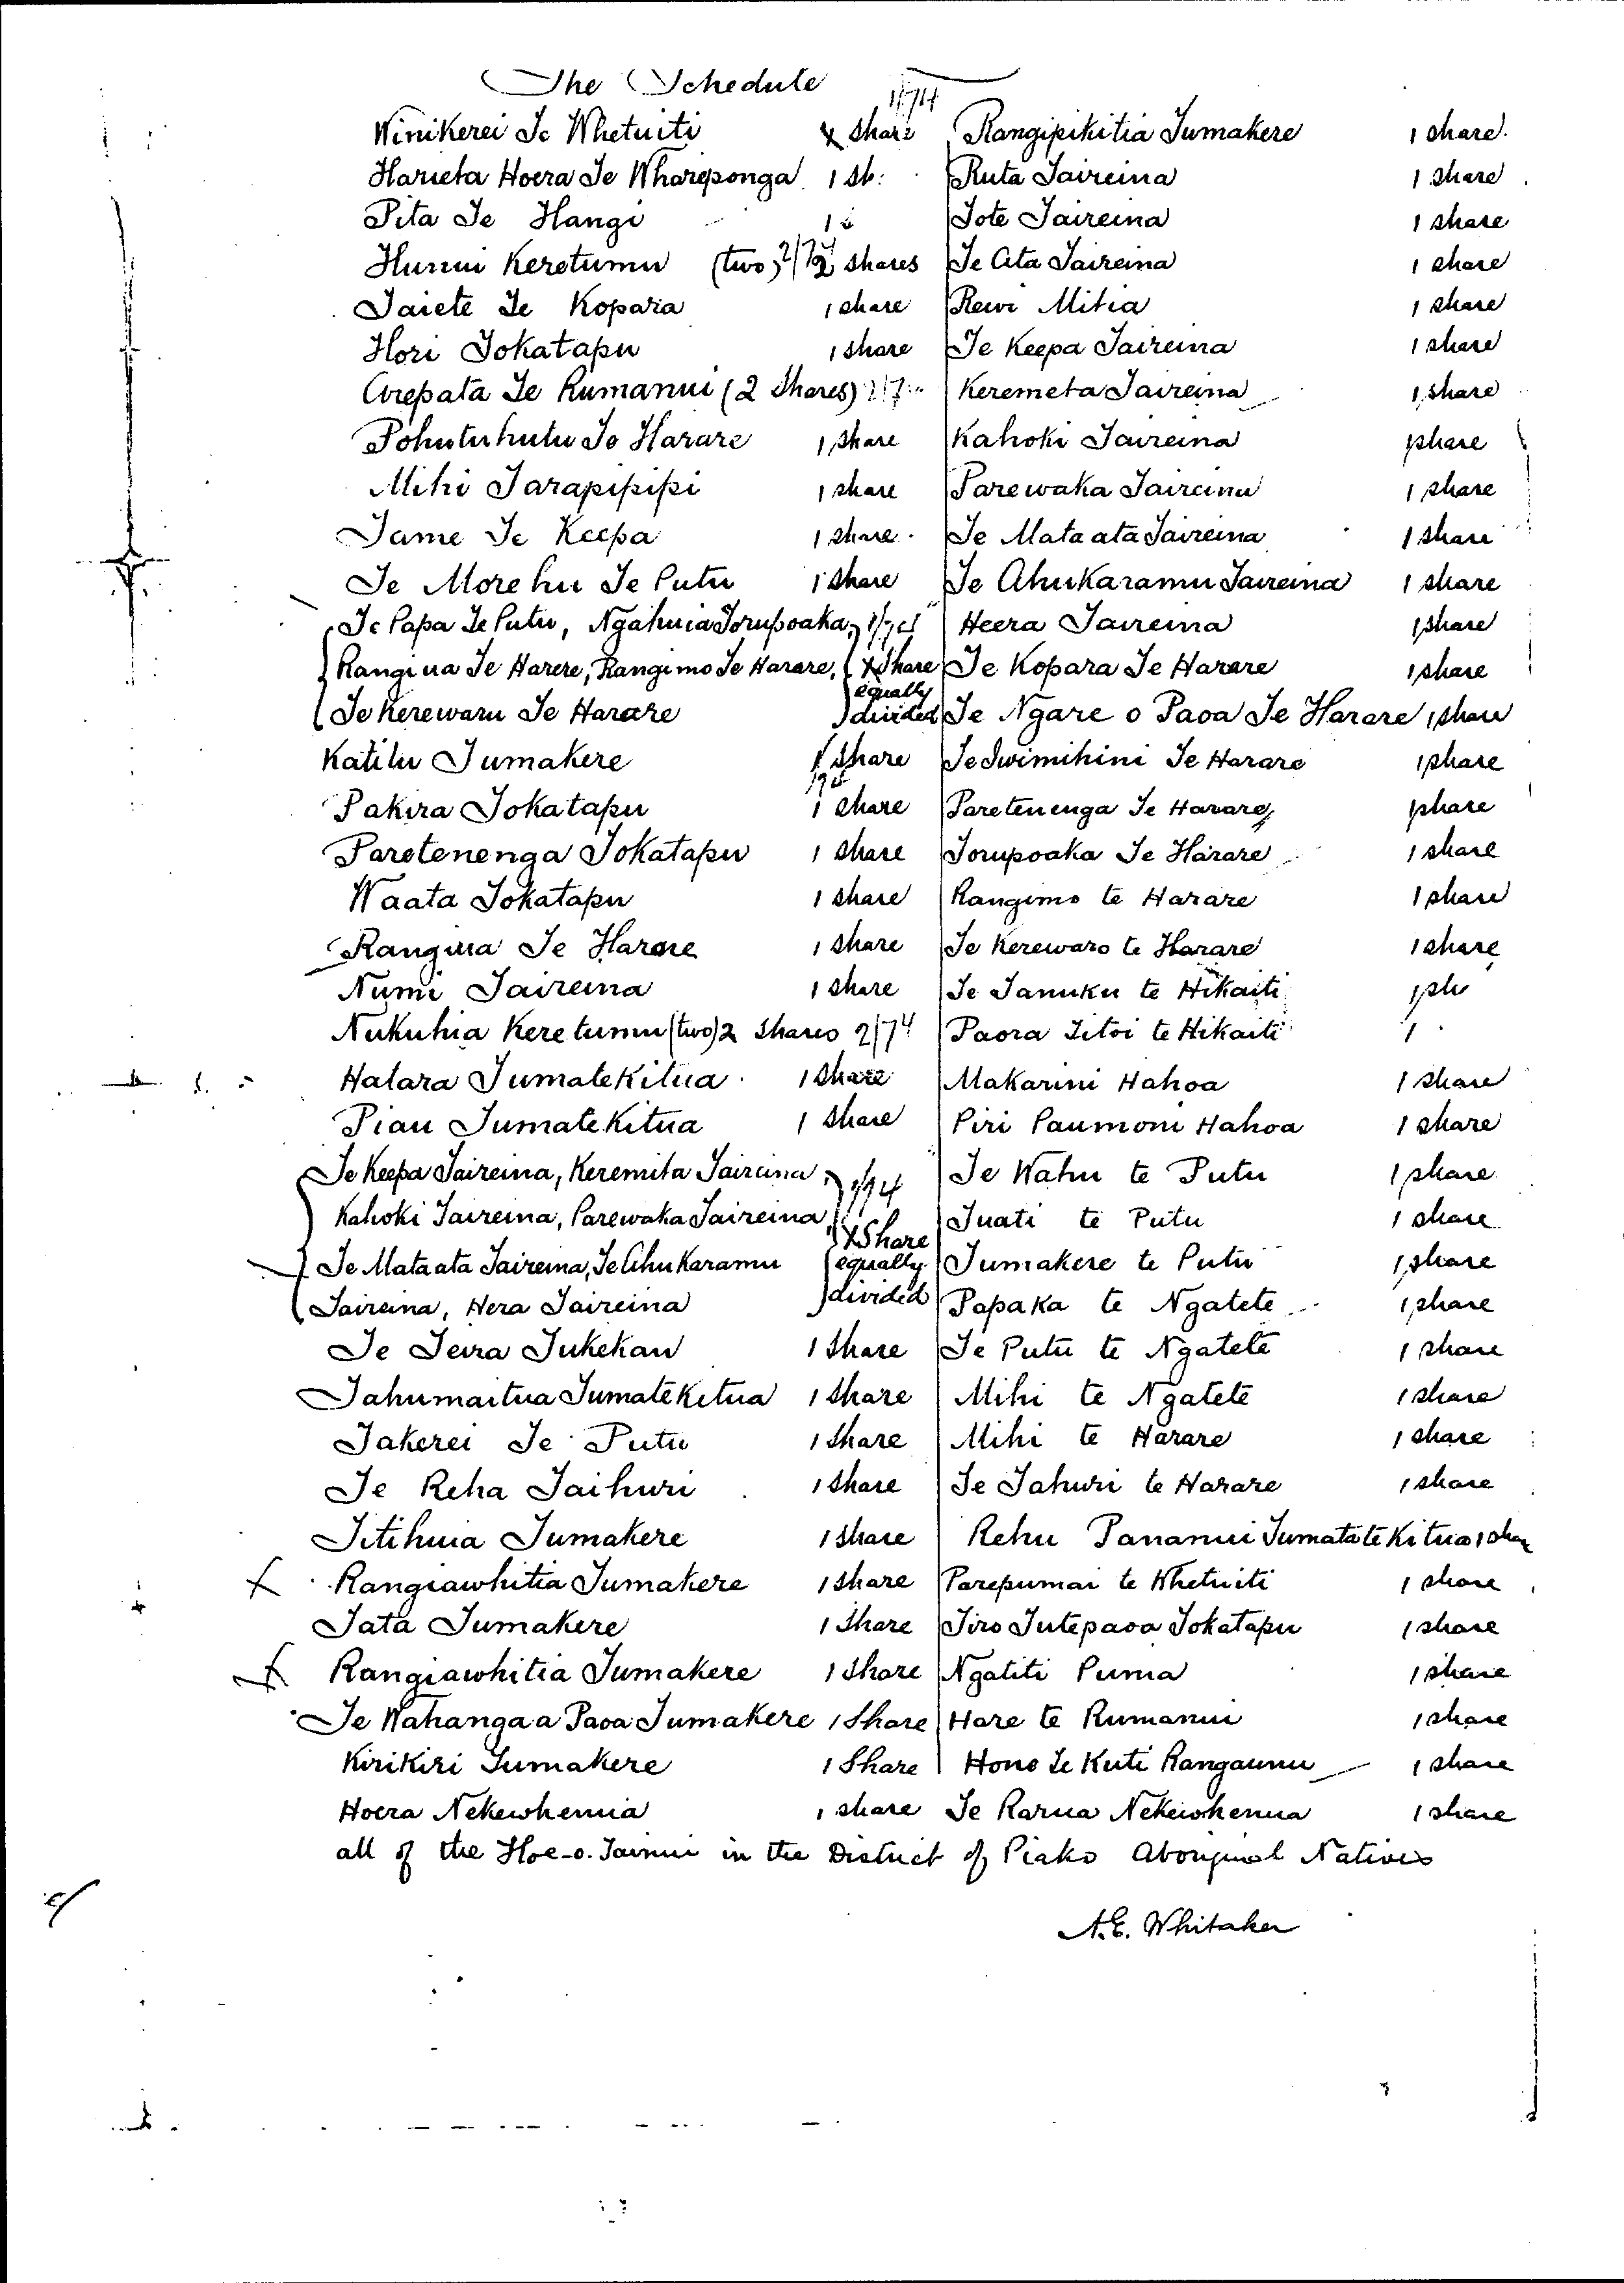 The Schedule
Winikerei Te Whetuiti 1/74 share
Harieta Hoera Te Whareponga 1 sh:
Pita Te Hangi 1
Hunui Keretumu (two) 2/74 shares
Taiete Te Kopara 1 share
Hori Tokatapu 1 share
Arepata Te Rumanui (2 Shares)
Pohutuhutu Te Harare 1 share
Mihi Tarapipipi 1 share
Tame Te Keepa 1 share
Te Morehu Te Putu 1 share
Te Papa Te Putu, Ngahuia Torupoaka, 1/74
Rangiua Te Harere, Rangimo Te Harare, Share
equally
Te Kerewaru Te Harare divided
Katilu Tumakere 1 share
Pakira Tokatapu 1 share
Paretenenga Tokatapu 1 share
Waata Tokatapu 1 share
Rangiua Te Harare 1 share
Numi Taireina 1 share
Nukuhia Keretumu (two) 2 shares 2/74
Hatara Tumatekitua 1 share
Piau Tumatekitua 1 share
Te Keepa Taireina, Keremita Taireina, 1/74
Kahoki Taireina, Parewaka Taireina,
Share
Te Mataata Taireina, Te Ahukaramu equally
Taireina, Hera Taireina divided
Te Teira Tukekau 1 Share
Tahumaitua Tumatekitua 1 share
Takerei Te Putu 1 share
Te Reha Taihuri 1 share
Titihuia Tumakere 1 share
Rangiawhitia Tumakere 1 share
Tata Tumakere 1 share
Rangiawhitia Tumakere 1 share
Te Wahanga a Paoa Tumakere 1 Share
Kirikiri Tumakere 1 Share
Hoera Nekewhenua 1 share
Rangipikitia Tumakere 1 share.
Ruta Taireina 1 share
Tote Taireina 1 share
Te Ata Taireina 1 share
Rewi Mitia 1 share
Te Keepa Taireina 1 share
Keremeta Taireina 1 share
Kahoki Taireina 1 share
Parewaka Taireina 1 share
Te Mataata Taireina 1 share
Te Ahukaramu Taireina 1 share
Heera Taireina 1 share
Te Kopara Te Harare 1 share
Te Ngare o Paoa Te Harare 1 share
Te Iwimihini Te Harare 1 share
Paretenenga Te Harare 1 share
Torupoaka Te Harare 1 share
Rangimo te Harare 1 share
Te Kerewaro te Harare 1 share
Te Tanuku te Hikaiti 1 sh
Paora Titoi te Hikaiti 1
Makarini Hahoa 1 share
Piri Paumoni Hahoa 1 share
Te Wahu te Putu 1 share
Tuati te Putu 1 share
Tumakere te Putu 1 share
Papaka te Ngatete 1 share
Te Putu te Ngatete 1 share
Mihi te Ngatete 1 share
Mihi te Harare 1 share
Te Tahuri te Harare 1 share
Rehu Pananui Tumatatekitua 1 share
Parepumai te Whetuiti 1 share
Tiro Tutepaoa Tokatapu 1 share
Ngatiti Puma 1 share
Hare te Rumanui 1 share
Hone Te Kuti Rangaunu 1 share
Te Rarua Nekewhenua 1 share
all of the Hoe-o-Tainui in the District of Piako Aboriginal Natives
A.E. Whitaker